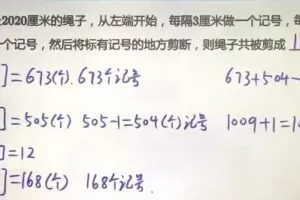 2020厘米的绳子，从左端开始，每隔3厘米做一个记号，每
个记号，然后将标有记号的地方剪断，则绳子共被剪成
]=673(个). 673个记号 673+504-
]=505(个) 505-1=504(个)记号 1009+1=10
]=12
]=168(个) 168个记号.